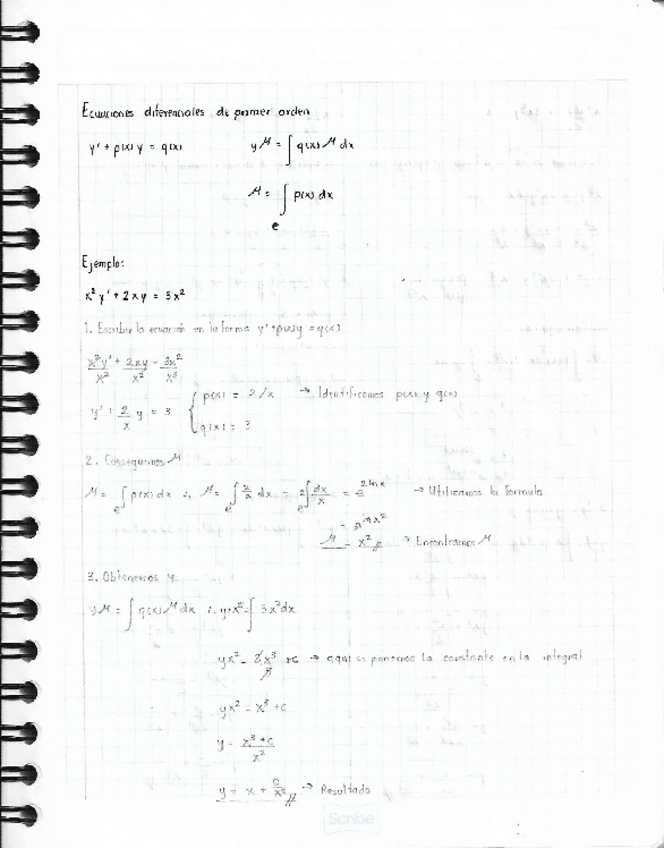 Ecuaciones diferenciales de primer orden
y' + p(x) y = q(x)    yM = ∫ q(x) M dx
M = e^∫ p(x) dx
Ejemplo:
x² y' + 2xy = 3x²
1. Escribir la ecuación en la forma y' + p(x)y = q(x)
x²y'/x² + 2xy/x² = 3x²/x²
y' + 2/x y = 3 { p(x) = 2/x → Identificamos p(x) y q(x)
q(x) = 3
2. Conseguimos M
M = e^∫ p(x) dx ∴ M = e^∫ 2/x dx = e^2∫ dx/x = e^2lnx → Utilizamos la formula
= e^lnx²
M = x² // → Encontramos M
3. Obtenemos y.
yM = ∫ q(x) M dx ∴ y·x² = ∫ 3x² dx
yx² = 3x³/3 + c → aqui si ponemos la constante en la integral
yx² = x³ + c
y = x³ + c / x²
y = x + c/x² // → Resultado
Scribe